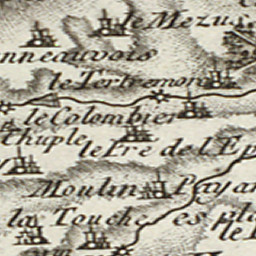 le Mezus
nneauvois
le Tertremon
le Colombier
Chuple
le Fre de l'Ep
Moulin Payan
la Touche es pla
le